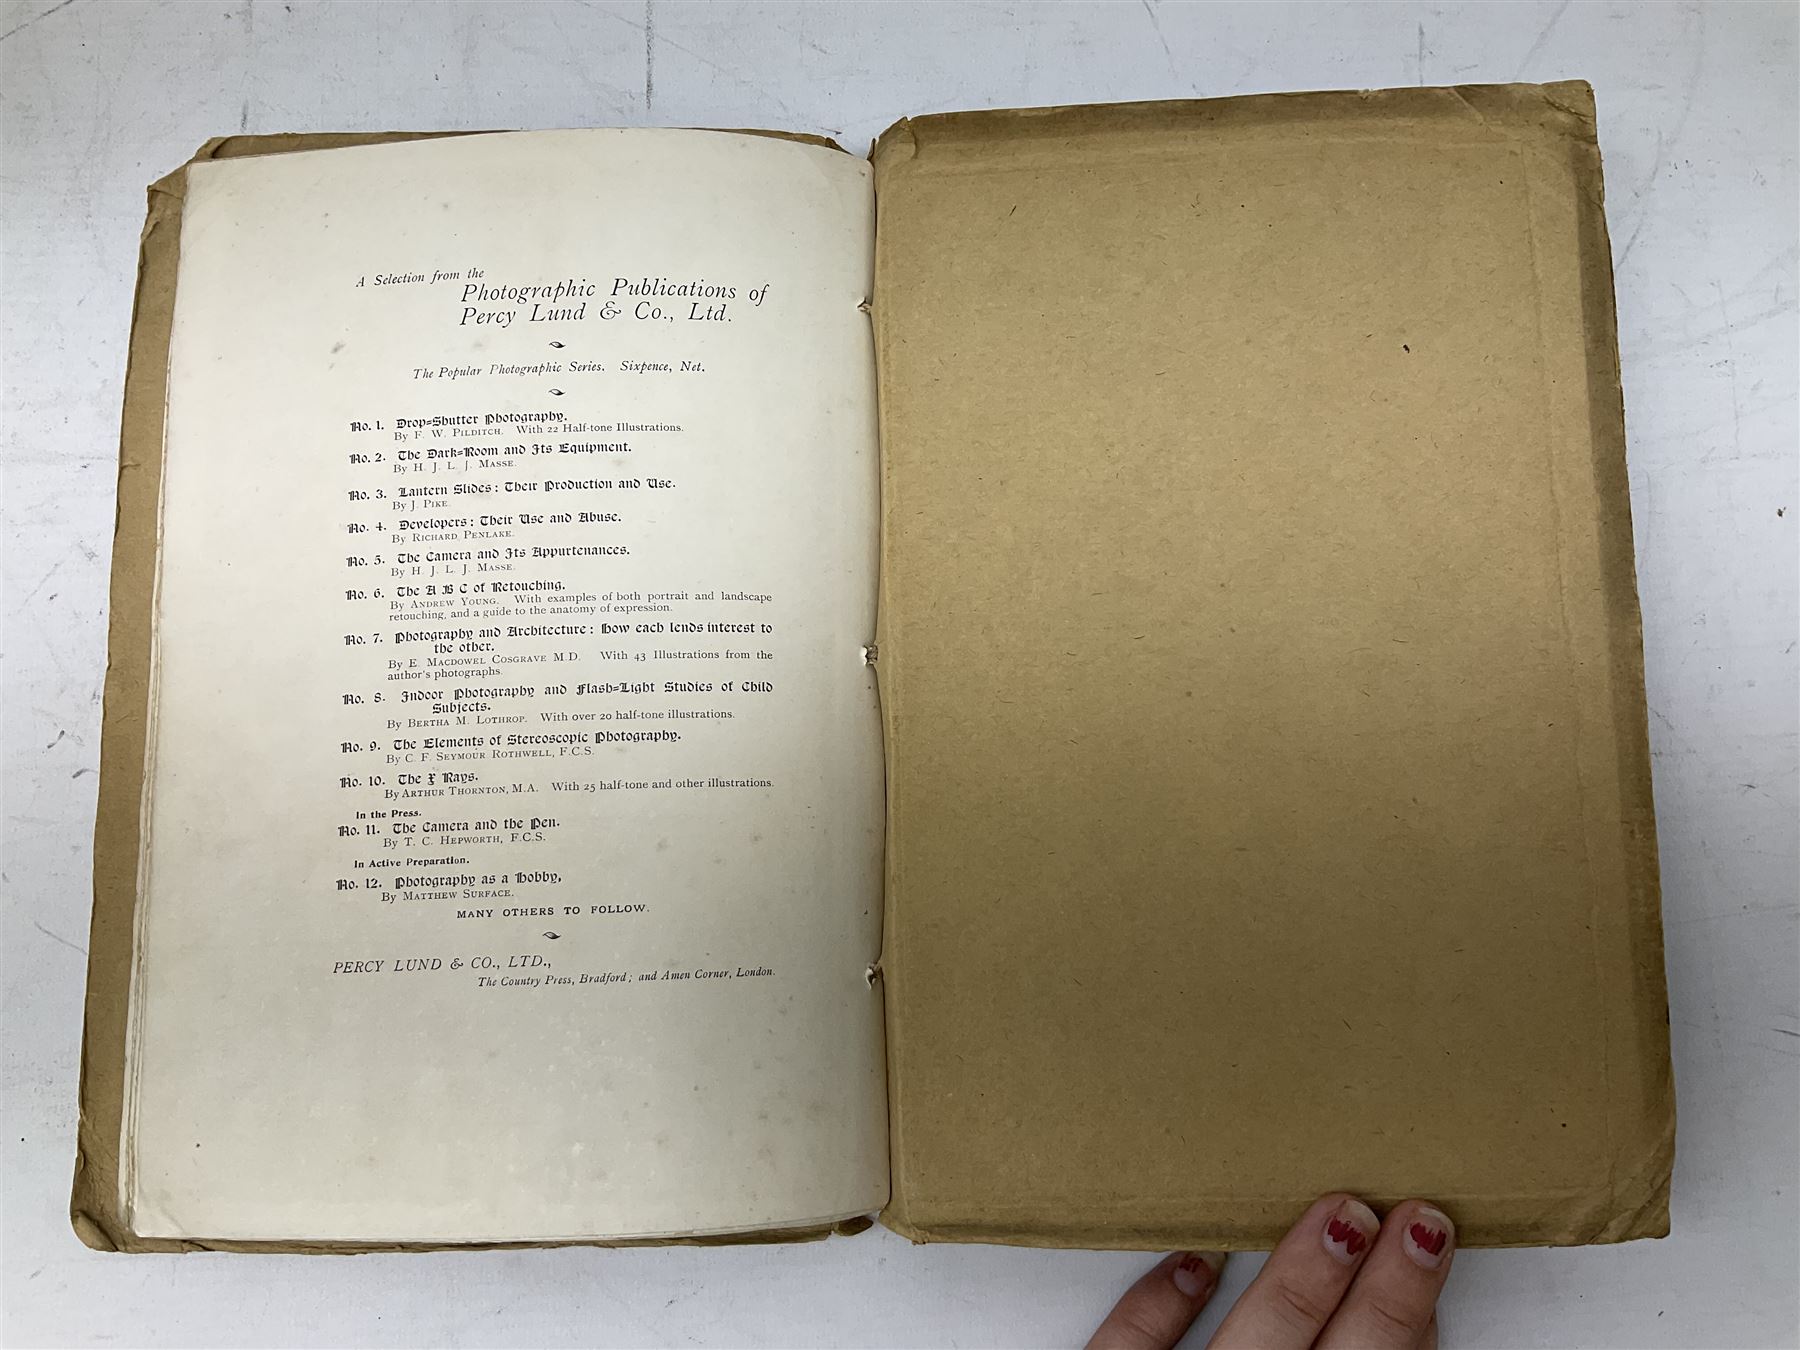 A Selection from the
Photographic Publications of
Percy Lund & Co., Ltd.
The Popular Photographic Series. Sixpence, Net.
No. 1. Drop=Shutter Photography.
By F. W. PILDITCH. With 22 Half-tone Illustrations.
No. 2. The Dark=Room and Its Equipment.
By H. J. L. J. MASSE.
No. 3. Lantern Slides: Their Production and Use.
By J. PIKE.
No. 4. Developers: Their Use and Abuse.
By RICHARD PENLAKE.
No. 5. The Camera and Its Appurtenances.
By H. J. L. J. MASSE.
No. 6. The A B C of Retouching.
By ANDREW YOUNG. With examples of both portrait and landscape
retouching, and a guide to the anatomy of expression.
No. 7. Photography and Architecture: how each lends interest to
the other.
By E. MACDOWEL COSGRAVE M.D. With 43 Illustrations from the
author's photographs.
No. 8. Indoor Photography and Flash=Light Studies of Child
Subjects.
By BERTHA M. LOTHROP. With over 20 half-tone illustrations.
No. 9. The Elements of Stereoscopic Photography.
By C. F. SEYMOUR ROTHWELL, F.C.S.
No. 10. The X Rays.
By ARTHUR THORNTON, M.A. With 25 half-tone and other illustrations.
In the Press.
No. 11. The Camera and the Pen.
By T. C. HEPWORTH, F.C.S.
In Active Preparation.
No. 12. Photography as a Hobby,
By MATTHEW SURFACE.
MANY OTHERS TO FOLLOW.
PERCY LUND & CO., LTD.,
The Country Press, Bradford; and Amen Corner, London.